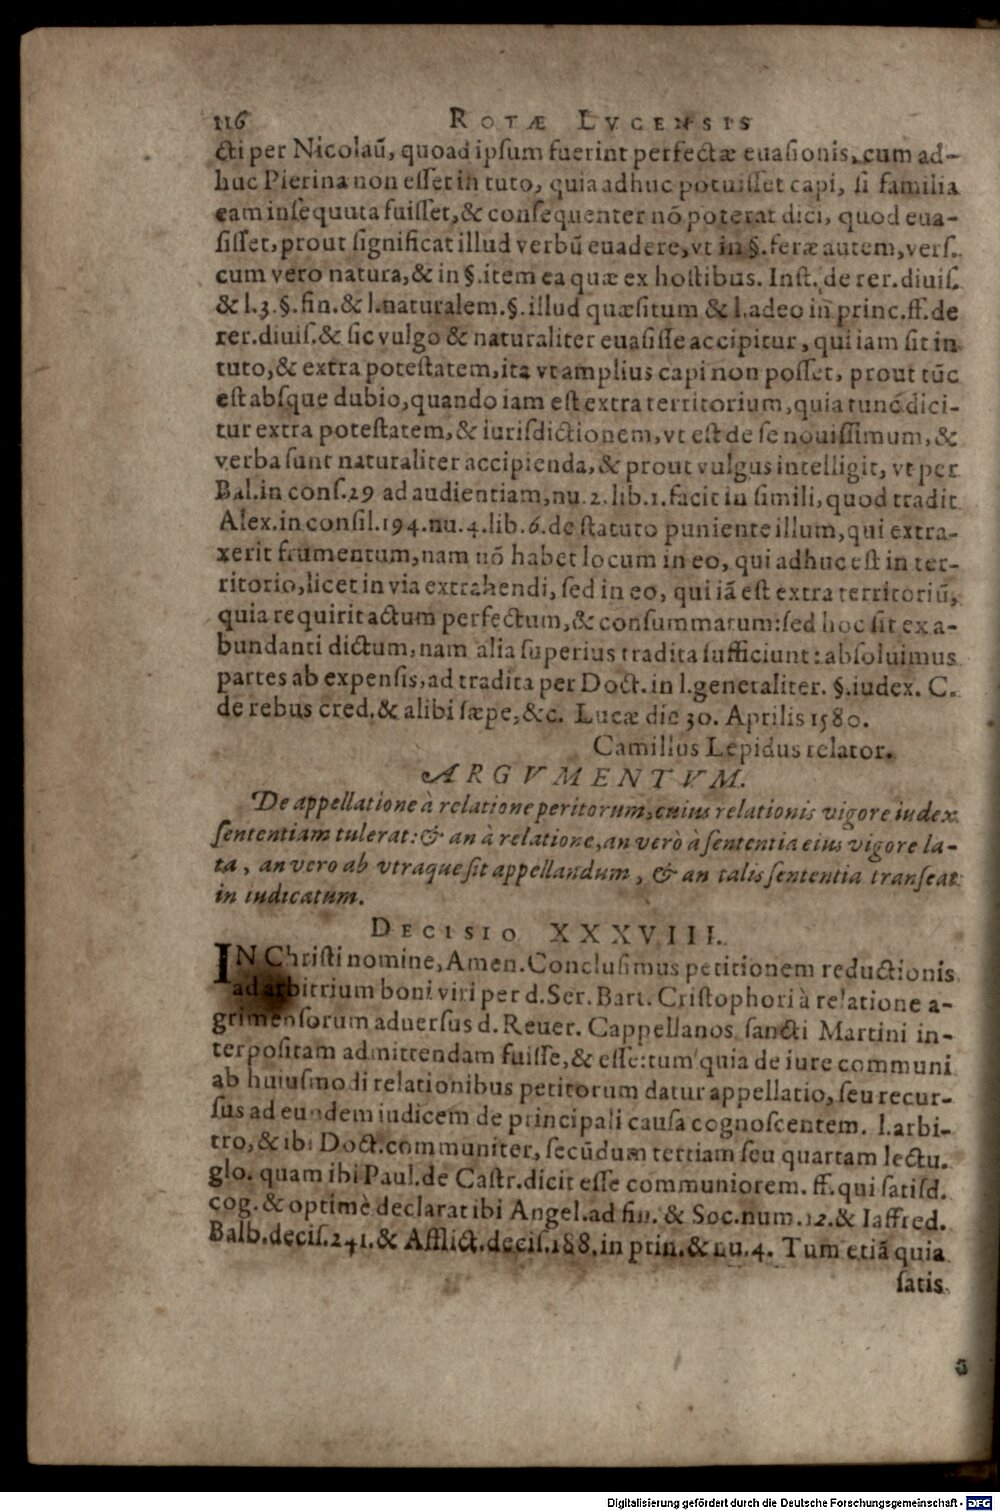 116 ROTÆ LVCENSIS
cti per Nicolaū, quoad ipsum fuerint perfectæ euasionis, cum ad-
huc Pierina non esset in tuto, quia adhuc potuisset capi, si familia
eam insequuta fuisset, & consequenter nō poterat dici, quod eua-
sisset, prout significat illud verbū euadere, vt in §. feræ autem, vers.
cum vero natura, & in §. item ea quæ ex hostibus. Inst. de rer. diuis.
& l.3. §. fin. & l. naturalem. §. illud quæsitum & l. adeo in princ. ff. de
rer. diuis. & sic vulgo & naturaliter euasisse accipitur, qui iam sit in
tuto, & extra potestatem, ita vt amplius capi non posset, prout tūc
est absque dubio, quando iam est extra territorium, quia tunc dici-
tur extra potestatem, & iurisdictionem, vt est de se nouissimum, &
verba sunt naturaliter accipienda, & prout vulgus intelligit, vt per
Bal. in cons. 29 ad audientiam, nu. 2. lib. 1. facit in simili, quod tradit
Alex. in consil. 194. nu. 4. lib. 6. de statuto puniente illum, qui extra-
xerit frumentum, nam nō habet locum in eo, qui adhuc est in ter-
ritorio, licet in via extrahendi, sed in eo, qui iā est extra territoriū,
quia requirit actum perfectum, & consummatum: sed hoc sit ex a-
bundanti dictum, nam alia superius tradita sufficiunt: absoluimus
partes ab expensis, ad tradita per Doct. in l. generaliter. §. iudex. C.
de rebus cred. & alibi sæpe, &c. Lucæ die 30. Aprilis 1580.
Camillus Lepidus relator.
ARGVMENTVM.
De appellatione à relatione peritorum, cuius relationis vigore iudex
sententiam tulerat: & an à relatione, an verò à sententia eius vigore la-
ta, an vero ab vtraque sit appellandum, & an talis sententia transeat
in iudicatum.
DECISIO XXXVIII.
IN Christi nomine, Amen. Conclusimus petitionem reductionis
ad arbitrium boni viri per d. Ser. Bart. Cristophori à relatione a-
grimensorum aduersus d. Reuer. Cappellanos sancti Martini in-
terpositam admittendam fuisse, & esse: tum quia de iure communi
ab huiusmodi relationibus peritorum datur appellatio, seu recur-
sus ad eundem iudicem de principali causa cognoscentem. l. arbi-
tro, & ibi Doct. communiter, secūdum tertiam seu quartam lectu.
glo. quam ibi Paul. de Castr. dicit esse communiorem. ff. qui satisd.
cog. & optimè declarat ibi Angel. ad fin. & Soc. num. 12. & Iaffred.
Balb. decis. 241. & Afflict. decis. 188. in prin. & nu. 4. Tum etiā quia
satis
Digitalisierung gefördert durch die Deutsche Forschungsgemeinschaft - DFG